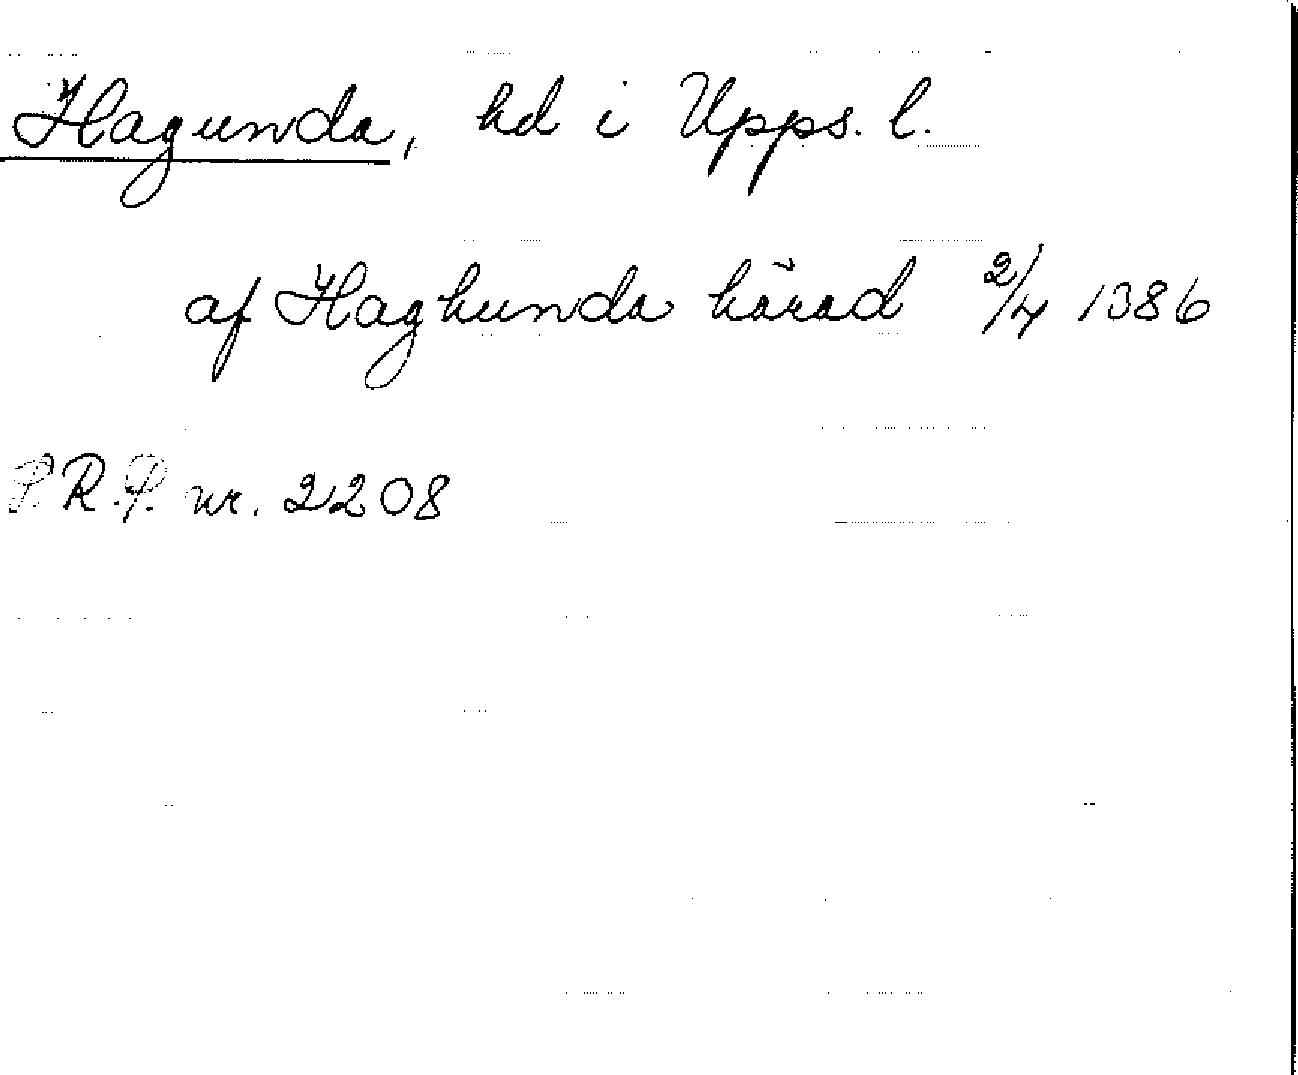 Hagunda, hd i Upps. l.
af Haghunda härad 2/4 1386
P.R.P. nr. 2208